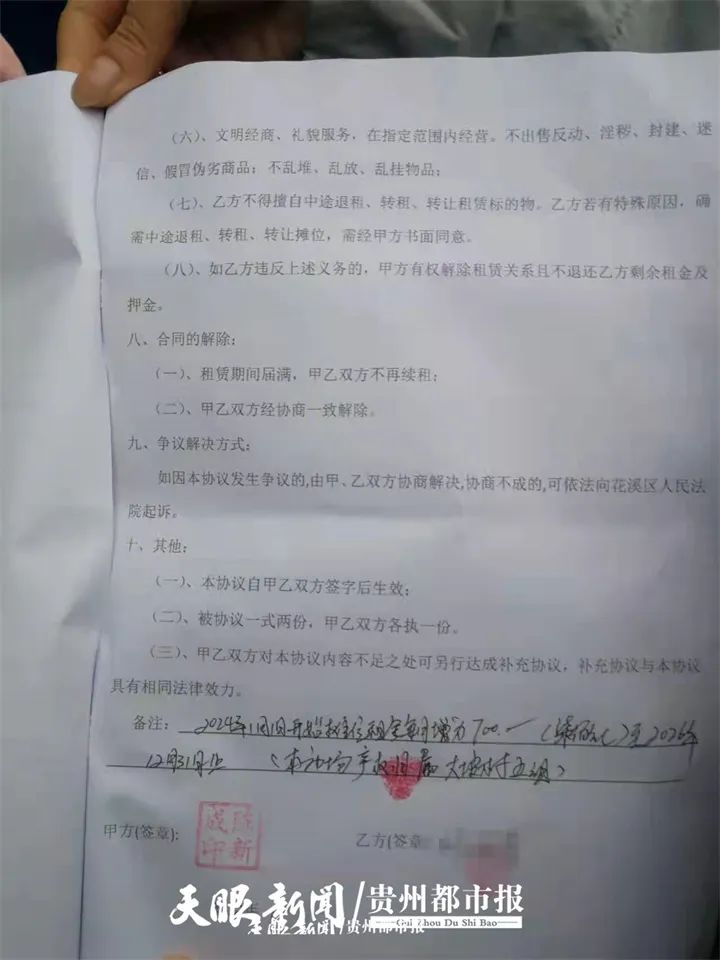 （六）、文明经商、礼貌服务，在指定范围内经营。不出售反动、淫秽、封建、迷
信、假冒伪劣商品；不乱堆、乱放、乱挂物品；
（七）、乙方不得擅自中途退租、转租、转让租赁标的物。乙方若有特殊原因，确
需中途退租、转租、转让摊位，需经甲方书面同意。
（八）、如乙方违反上述义务的，甲方有权解除租赁关系且不退还乙方剩余租金及
押金。
八、合同的解除：
（一）、租赁期间届满，甲乙双方不再续租；
（二）、甲乙双方经协商一致解除。
九、争议解决方式：
如因本协议发生争议的,由甲、乙双方协商解决,协商不成的,可依法向花溪区人民法
院起诉。
十、其他：
（一）、本协议自甲乙双方签字后生效；
（二）、被协议一式两份，甲乙双方各执一份。
（三）、甲乙双方对本协议内容不足之处可另行达成补充协议，补充协议与本协议
具有相同法律效力。
备注：2024年1月1日开始 租金每月增为700.一（柒佰元）至2026年
12月31日止（本市场产权归属 村五组）
甲方(签章): 新 印
乙方(签章
天眼新闻/贵州都市报
Gui Zhou Du Shi Bao
天眼新闻/贵州都市报